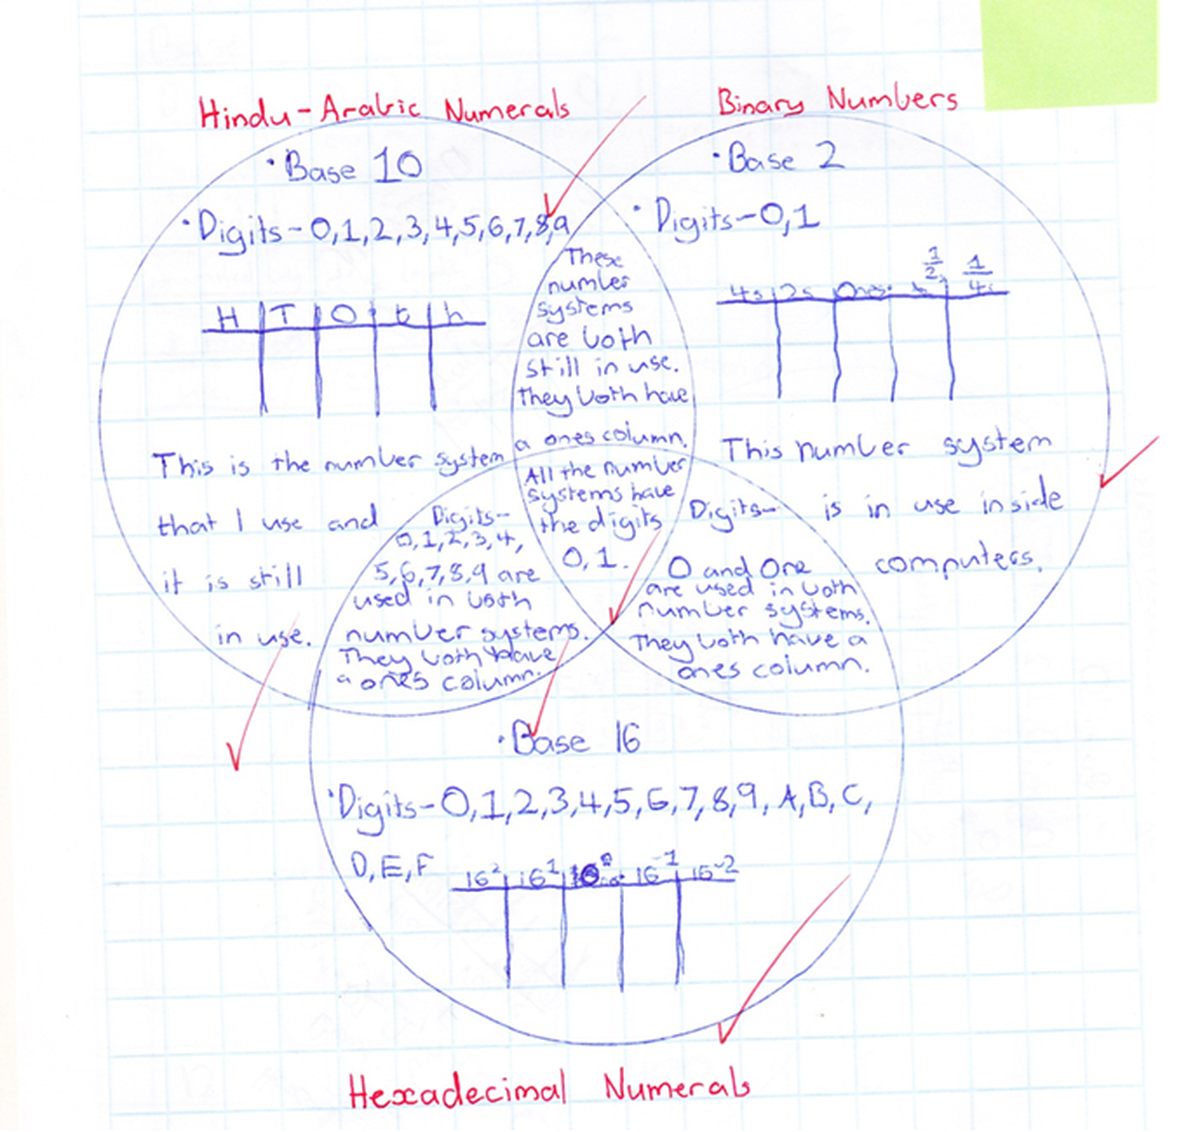 Hindu-Arabic Numerals
Binary Numbers
·Base 10
·Digits-0,1,2,3,4,5,6,7,8,9
H T O t h
This is the number system
that I use and
it is still
in use.
·Base 2
·Digits-0,1
4s 2s Ones. 1/2s 1/4s
This number system
is in use inside
computers.
These
number
systems
are both
still in use.
They both have
a ones column.
All the number
systems have
the digits
0,1.
Digits-
0,1,2,3,4,
5,6,7,8,9 are
used in both
number systems.
They both have
a ones column.
Digits-
0 and One
are used in both
number systems.
They both have a
ones column.
·Base 16
·Digits-0,1,2,3,4,5,6,7,8,9,A,B,C,
D,E,F
16² 16¹ 16⁰. 16⁻¹ 16⁻²
Hexadecimal Numerals